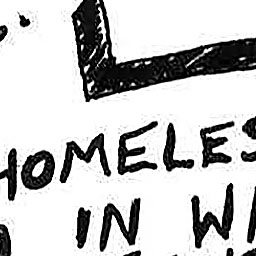 HOMELES
IN WI